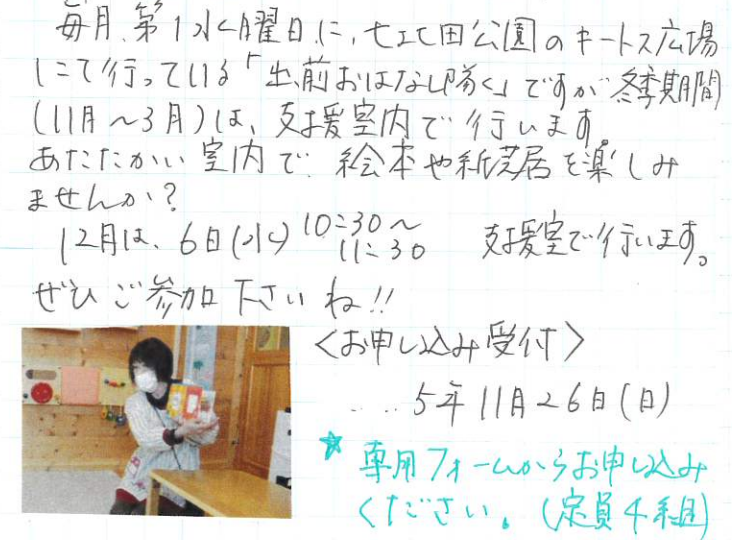 毎月、第1水曜日に、七北田公園のキートス広場
にて行っている「出前おはなし隊」ですが冬季期間
(11月～3月)は、支援室内で行います。
あたたかい室内で 絵本や紙芝居を楽しみ
ませんか?
12月は、6日(水) 10:30～
11:30 支援室で行います。
ぜひご参加下さいね!!
<お申し込み受付>
.... 5年11月26日(日)
★ 専用フォームからお申し込み
ください。(定員4組)